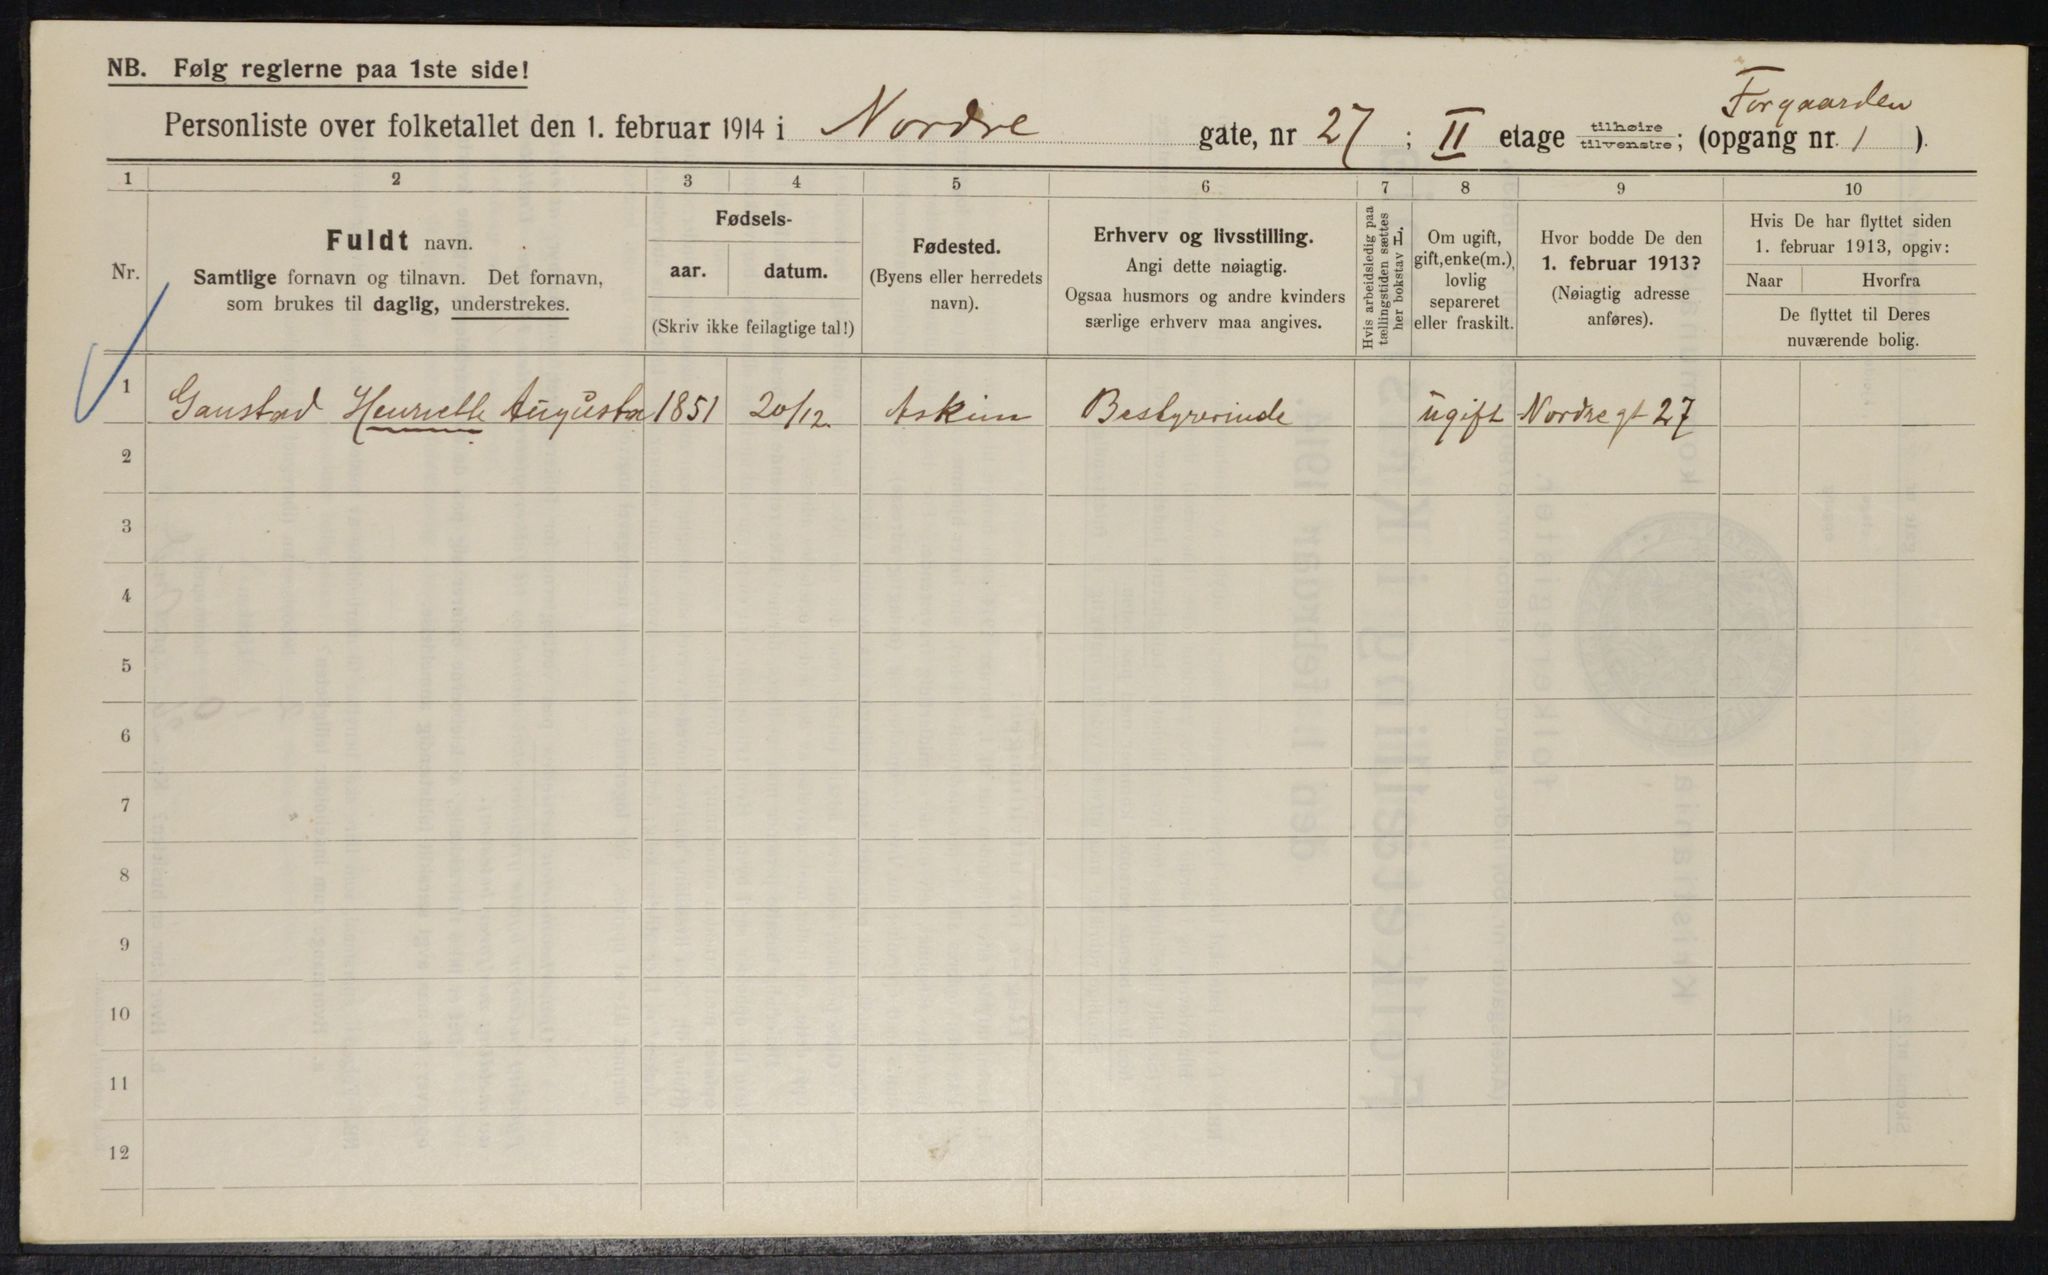 NB. Følg reglerne paa 1ste side!
Forgaarden
Personliste over folketallet den 1. februar 1914 i Nordre gate, nr 27 ; II etage tilhøire/tilvenstre; (opgang nr. 1 ).
1 2 3 4 5 6 7 8 9 10
Nr.
Fuldt navn.
Samtlige fornavn og tilnavn. Det fornavn,
som brukes til daglig, understrekes.
Fødsels-
aar.
datum.
(Skriv ikke feilagtige tal!)
Fødested.
(Byens eller herredets
navn).
Erhverv og livsstilling.
Angi dette nøiagtig.
Ogsaa husmors og andre kvinders
særlige erhverv maa angives.
Hvis arbeidsledig paa
tællingstiden sættes
her bokstav L.
Om ugift,
gift, enke(m.),
lovlig
separeret
eller fraskilt.
Hvor bodde De den
1. februar 1913?
(Nøiagtig adresse
anføres).
Hvis De har flyttet siden
1. februar 1913, opgiv:
Naar Hvorfra
De flyttet til Deres
nuværende bolig.
1 Gaustad Henriette Augusta 1851 20/12. Askim Bestyrerinde ugift Nordre gt 27
2
3
4
5
6
7
8
9
10
11
12